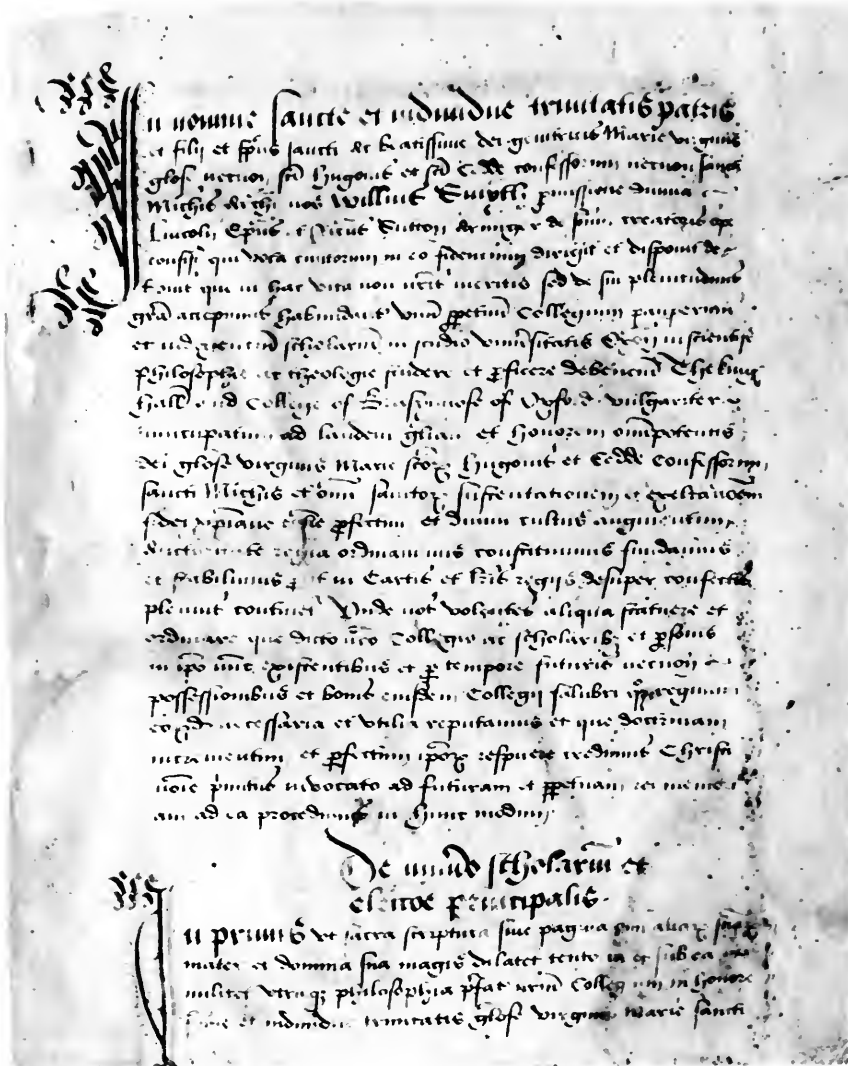 In nomine Sancte et individue trinitatis patris
et filii et sp̄us sancti ac beatissime dei genitricis Marie virginis
glose necnon scī Hugonis et scī Cedde confessorum necnon sancti
Michīs Archī nos Willm̄s Smyth p̄missione divina
Lincoln Ep̄us et Ricūs Sutton Armiger de sūmi creatoris ope
confisi qui vota cunctorum in eo fidencium dirigit et disponit de
bonis que in hac vita non nrīs meritis sed de sui plenitudinis
grā accepimus habundant̄ unū ꝑpetuū Collegium pauperum
et indigentiū scholariū in studio universitatis Oxoñ in scientiis
Philosophie ac theologie studere et ꝓficere debenciū The kinges
hall and College of Brasynnose of Oxford vulgariter
nuncupatum ad laudem glīam et honorem omīpotentis
dei glose virginis Marie scōꝝ Hugonis et Cedde Confessorum
sancti Michīs et omī sanctoꝝ sustentationem et exeltacōem
fidei xp̄iane ꝓfectum et divini cultus augmentum
Auctoritate regia ordinavimus constituimus fundavimus
et stabilivimus ꝓut in Cartis et lrīs regiis desuper confectis
pleniūs continet̄ Unde nos volentes aliqua statuere et
ordinare que dicto nrō Collegio ac scholaribꝫ et ꝑsonis
in ip̄o nūc existentibus et ꝓ tempore futuris necnon
possessionibus et bonis eiusdem Collegii salubri regimini
necessaria et utilia reputamus et que doctrinam
incrementum et ꝓfectum ip̄oꝝ respicere credimus Christi
noīe primitus invocato ad futuram et ꝑpetuam rei memori
am ad ea procedimus in hunc modum
De numo scholariū et
electōe principalis.
In primis ut sacra scriptura sive pagina
mater et domina sua magis dilatet tentoria et sub ea
militet utraqꝫ philosophia p̄fat nrūm Collegium in honore
et individue trinitatis glose virginis Marie sancti